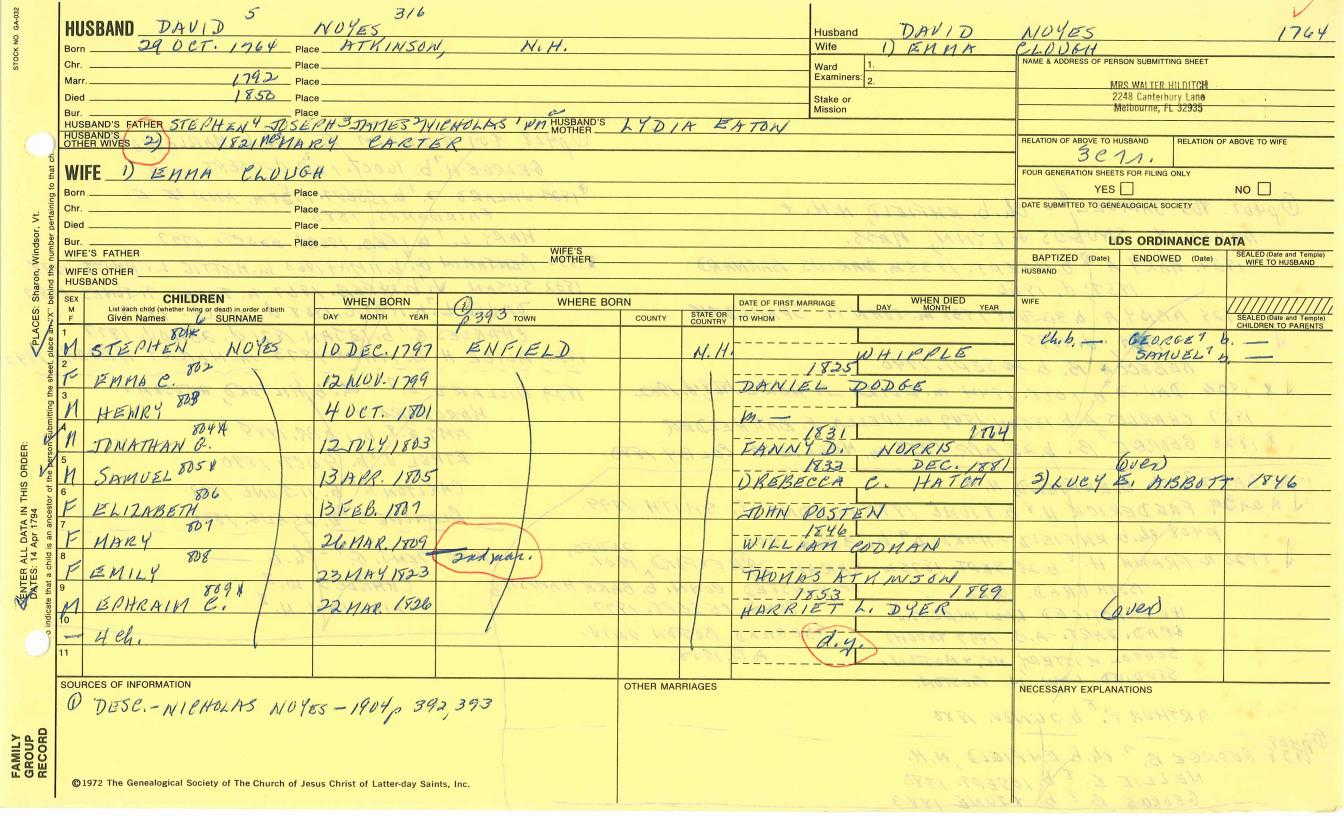 STOCK NO. GA-032
5 316
HUSBAND DAVID NOYES
Born 29 OCT. 1764 Place ATKINSON, N.H.
Chr. Place
Marr. 1792 Place
Died 1850 Place
Bur. Place
HUSBAND'S FATHER STEPHEN 4 JOSEPH 3 JAMES 2 NICHOLAS 1 HUSBAND'S MOTHER LYDIA EATON
HUSBAND'S OTHER WIVES 2) 1821 MARY CARTER
WIFE 1) EMMA CLOUGH
Born Place
Chr. Place
Died Place
Bur. Place
WIFE'S FATHER WIFE'S MOTHER
WIFE'S OTHER HUSBANDS
Husband DAVID NOYES 1764
Wife 1) EMMA CLOUGH
Ward Examiners: 1.
2.
Stake or Mission
NAME & ADDRESS OF PERSON SUBMITTING SHEET
MRS WALTER HILDITCH
2248 Canterbury Lane
Melbourne, FL 32935
RELATION OF ABOVE TO HUSBAND RELATION OF ABOVE TO WIFE
FOUR GENERATION SHEETS FOR FILING ONLY
YES NO
DATE SUBMITTED TO GENEALOGICAL SOCIETY
LDS ORDINANCE DATA
BAPTIZED (Date) ENDOWED (Date) SEALED (Date and Temple) WIFE TO HUSBAND
HUSBAND
WIFE
SEALED (Date and Temple) CHILDREN TO PARENTS
SEX M F
CHILDREN
List each child (whether living or dead) in order of birth
Given Names 6 SURNAME
WHEN BORN
DAY MONTH YEAR
WHERE BORN
1 p 393 TOWN COUNTY STATE OR COUNTRY
DATE OF FIRST MARRIAGE
TO WHOM
WHEN DIED
DAY MONTH YEAR
1 M STEPHEN NOYES 10 DEC. 1797 ENFIELD N.H. WHIPPLE Ch.b. — GEORGE 7 b. —
SAMUEL 7 b. —
1825
2 F EMMA C. 802 12 NOV. 1799 DANIEL DODGE
3 M HENRY 803 4 OCT. 1801 m. —
1831 1864
4 M JONATHAN G. 804X 12 JULY 1803 FANNY D. NORRIS
1833 DEC. 1881 (over)
5 M SAMUEL 805X 13 APR. 1805 1) REBECCA C. HATCH 2) LUCY E. ABBOTT 1846
6 F ELIZABETH 806 13 FEB. 1807 JOHN POSTEN
1846
7 F MARY 807 26 MAR. 1809 WILLIAM CODMAN
2nd mar.
8 F EMILY 808 23 MAY 1823 THOMAS ATKINSON
1853 1899
9 M EPHRAIM C. 809X 22 MAR. 1826 HARRIET L. DYER (over)
10 — 4 ch. d.y.
11
SOURCES OF INFORMATION
1 DESC.-NICHOLAS NOYES-1904 p 392, 393
OTHER MARRIAGES
NECESSARY EXPLANATIONS
©1972 The Genealogical Society of The Church of Jesus Christ of Latter-day Saints, Inc.
FAMILY GROUP RECORD
ENTER ALL DATA IN THIS ORDER:
DATES: 14 Apr 1794
PLACES: Sharon, Windsor, Vt.
indicate that a child is an ancestor of the person submitting the sheet, place an "X" behind the number pertaining to that ch